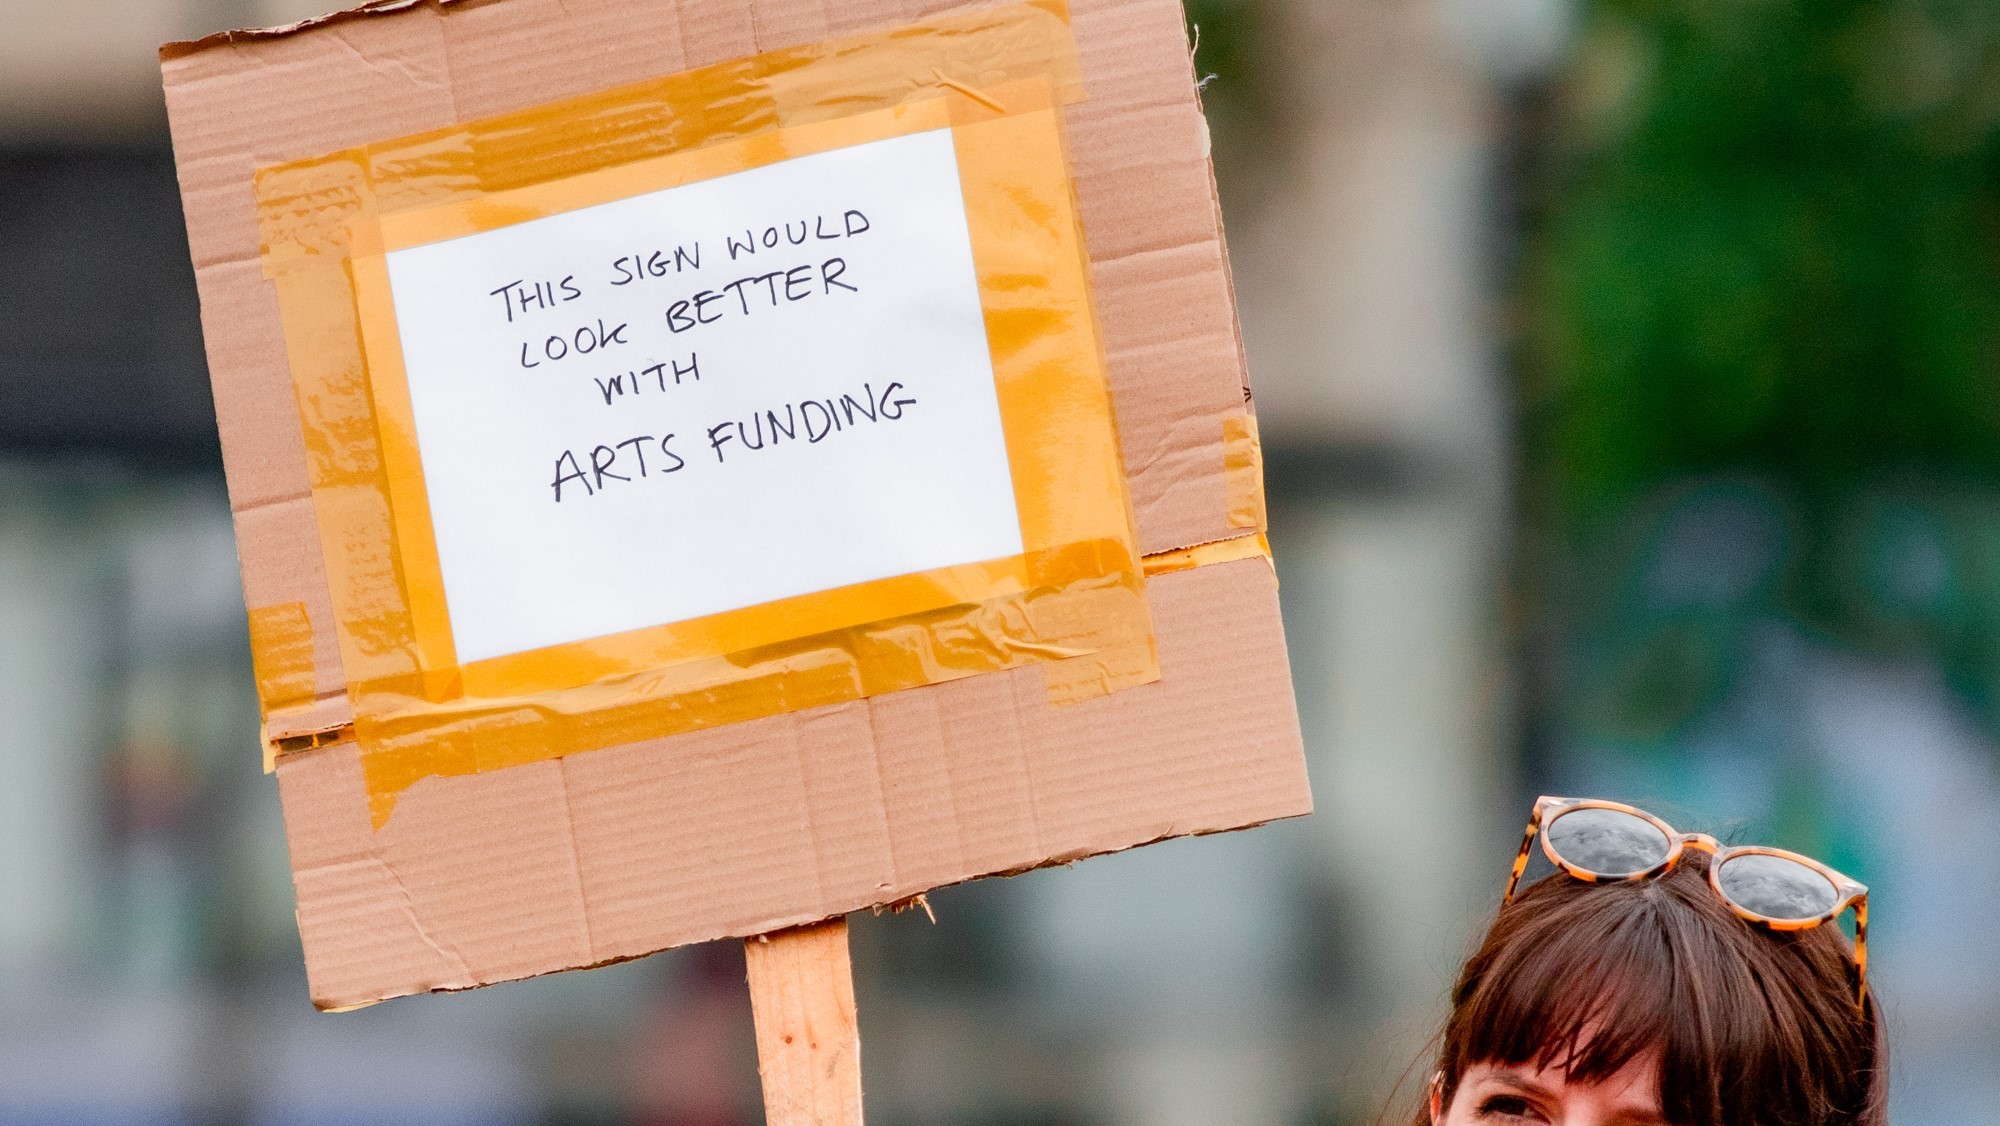 THIS SIGN WOULD
LOOK BETTER
WITH
ARTS FUNDING